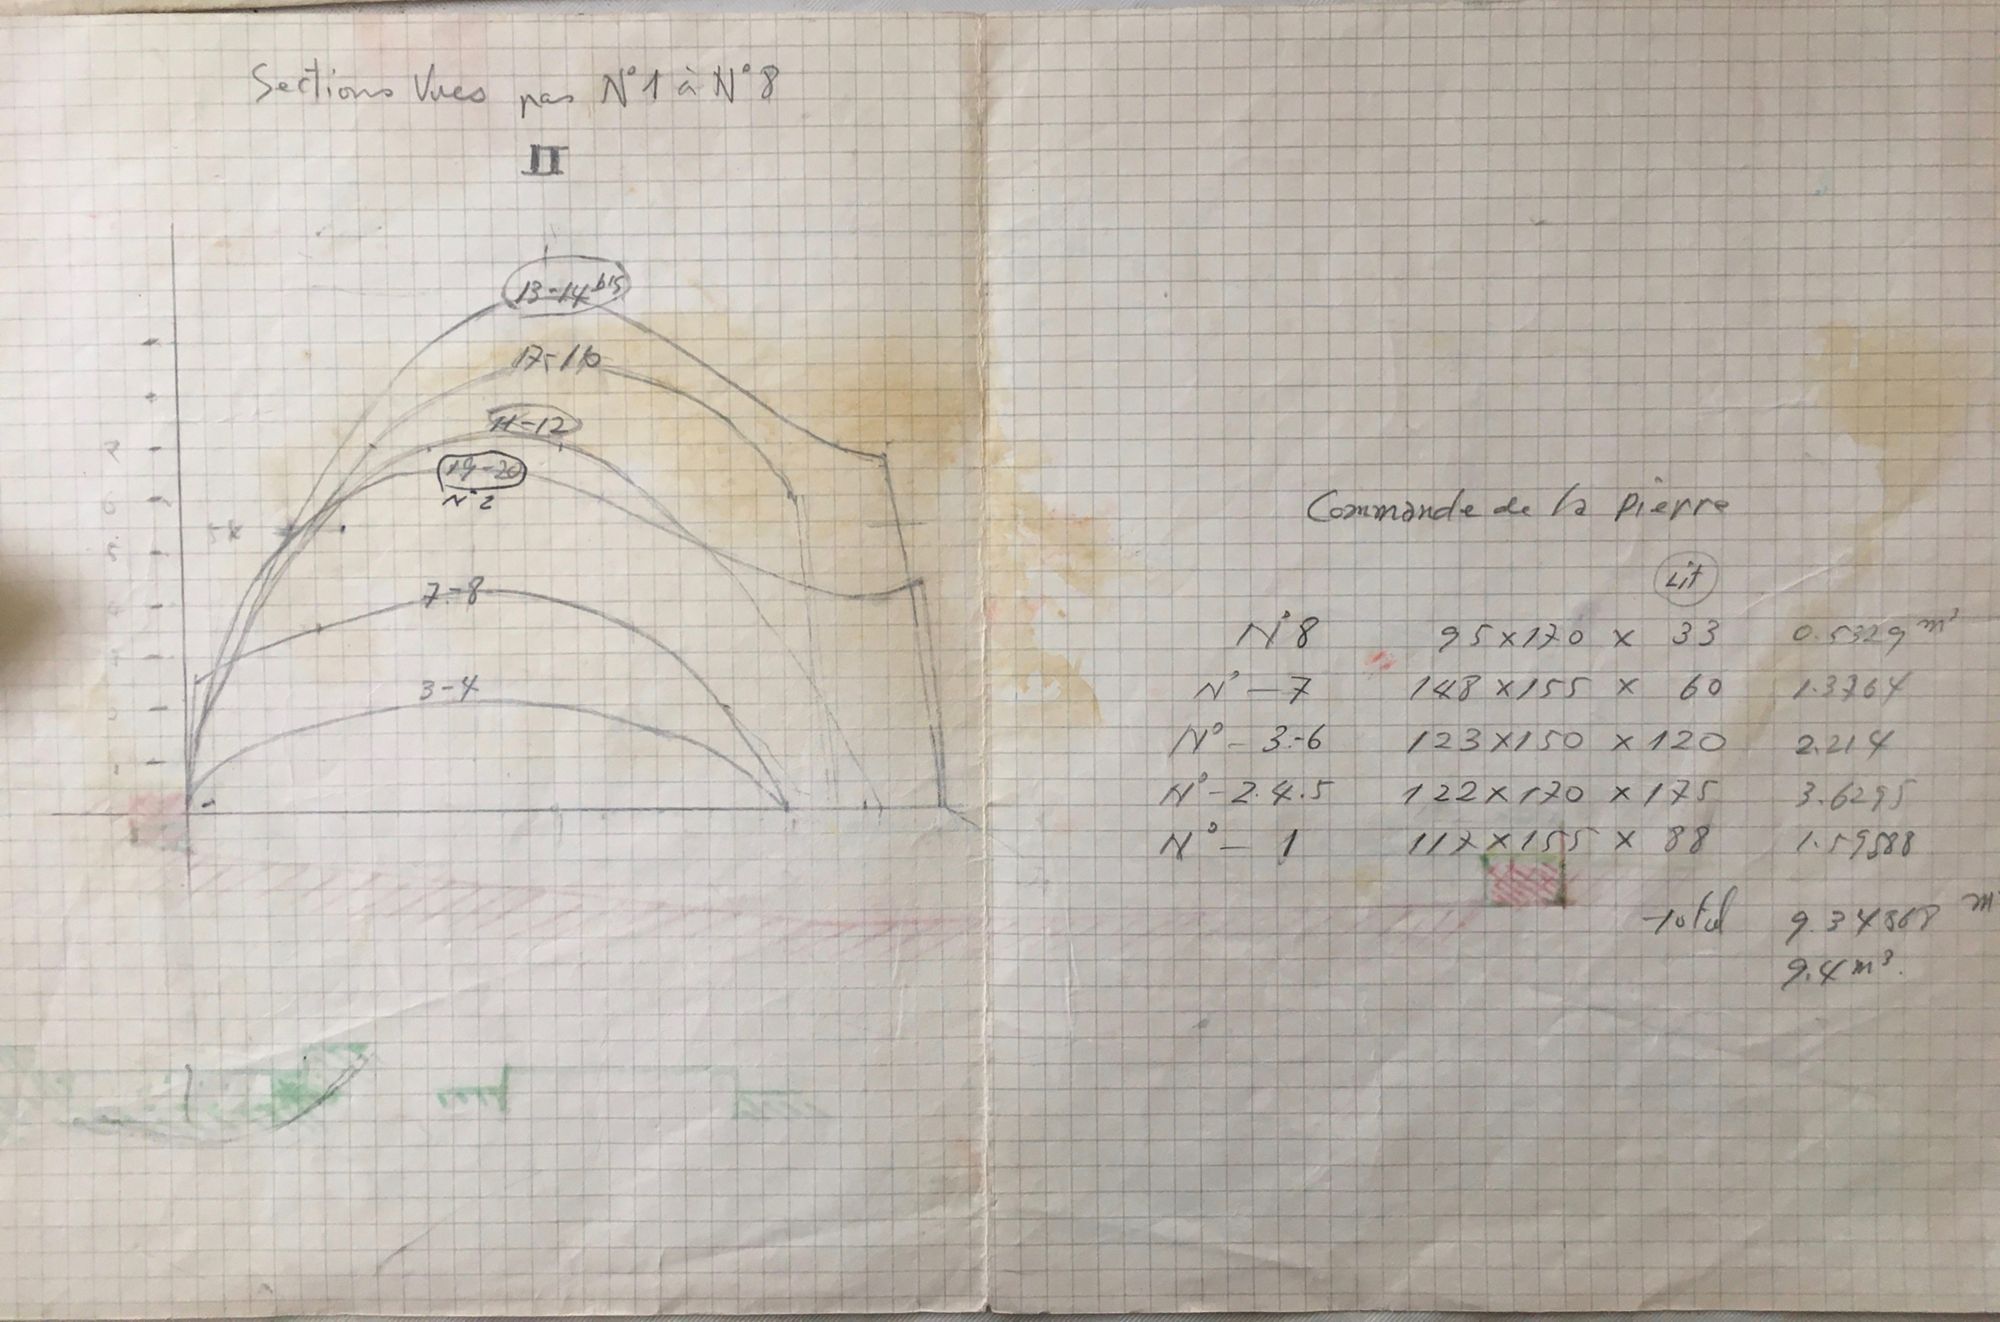 Sections Vues par N°1 à N°8
II
13-14 bis
17-18
11-12
19-20
N°2
7
6
5
5x
7-8
3-4
Commande de la pierre
Lit
N°8 95 x 170 x 33 0.5329 m³
N° - 7 148 x 155 x 60 1.3764
N° - 3.-6 123 x 150 x 120 2.214
N° - 2.4.5 122 x 170 x 175 3.6295
N° - 1 117 x 155 x 88 1.59588
total 9.34868 m³
9.4 m³.